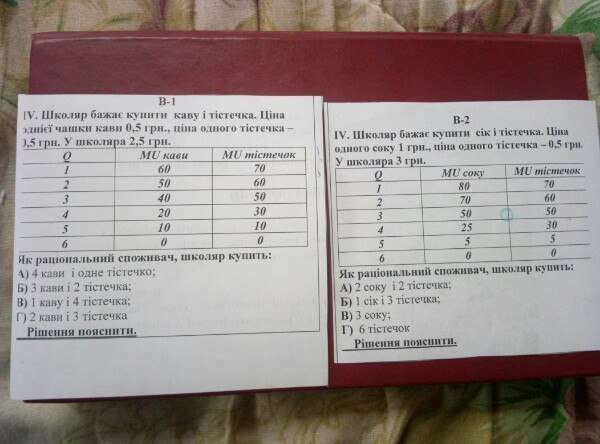 В-1
IV. Школяр бажає купити каву і тістечка. Ціна
однієї чашки кави 0,5 грн., ціна одного тістечка –
0,5 грн. У школяра 2,5 грн.
Q MU кави MU тістечок
1 60 70
2 50 60
3 40 50
4 20 30
5 10 10
6 0 0
Як раціональний споживач, школяр купить:
А) 4 кави і одне тістечко;
Б) 3 кави і 2 тістечка;
В) 1 каву і 4 тістечка;
Г) 2 кави і 3 тістечка
Рішення пояснити.
В-2
IV. Школяр бажає купити сік і тістечка. Ціна
одного соку 1 грн., ціна одного тістечка – 0,5 грн.
У школяра 3 грн.
Q MU соку MU тістечок
1 80 70
2 70 60
3 50 50
4 25 30
5 5 5
6 0 0
Як раціональний споживач, школяр купить:
А) 2 соку і 2 тістечка;
Б) 1 сік і 3 тістечка;
В) 3 соку;
Г) 6 тістечок
Рішення пояснити.